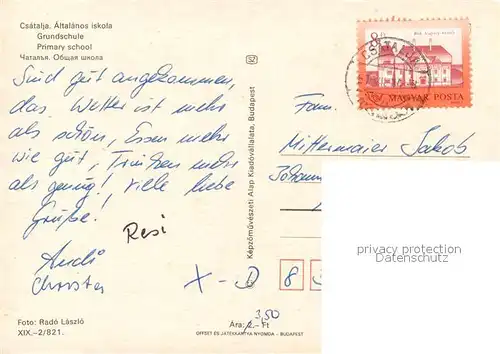 Csátalja. Általános iskola
Grundschule
Primary school
Чаталья. Общая школа
Sind gut angekommen,
das Wetter ist mehr
als schön, Essen mehr
wie gut, Trinken mehr
als genug! viele liebe
Grüße!
Resi
Andi
Christa
Foto: Radó László
XIX.–2/821.
Képzőművészeti Alap Kiadóvállalata, Budapest
MAGYAR POSTA
CSÁTALJA
Fam.
Mittermaier Jakob
Johann
X-D 8
3,50
Ára: 2.- Ft
OFFSET ÉS JÁTÉKKÁRTYA NYOMDA – BUDAPEST
privacy protection
Datenschutz